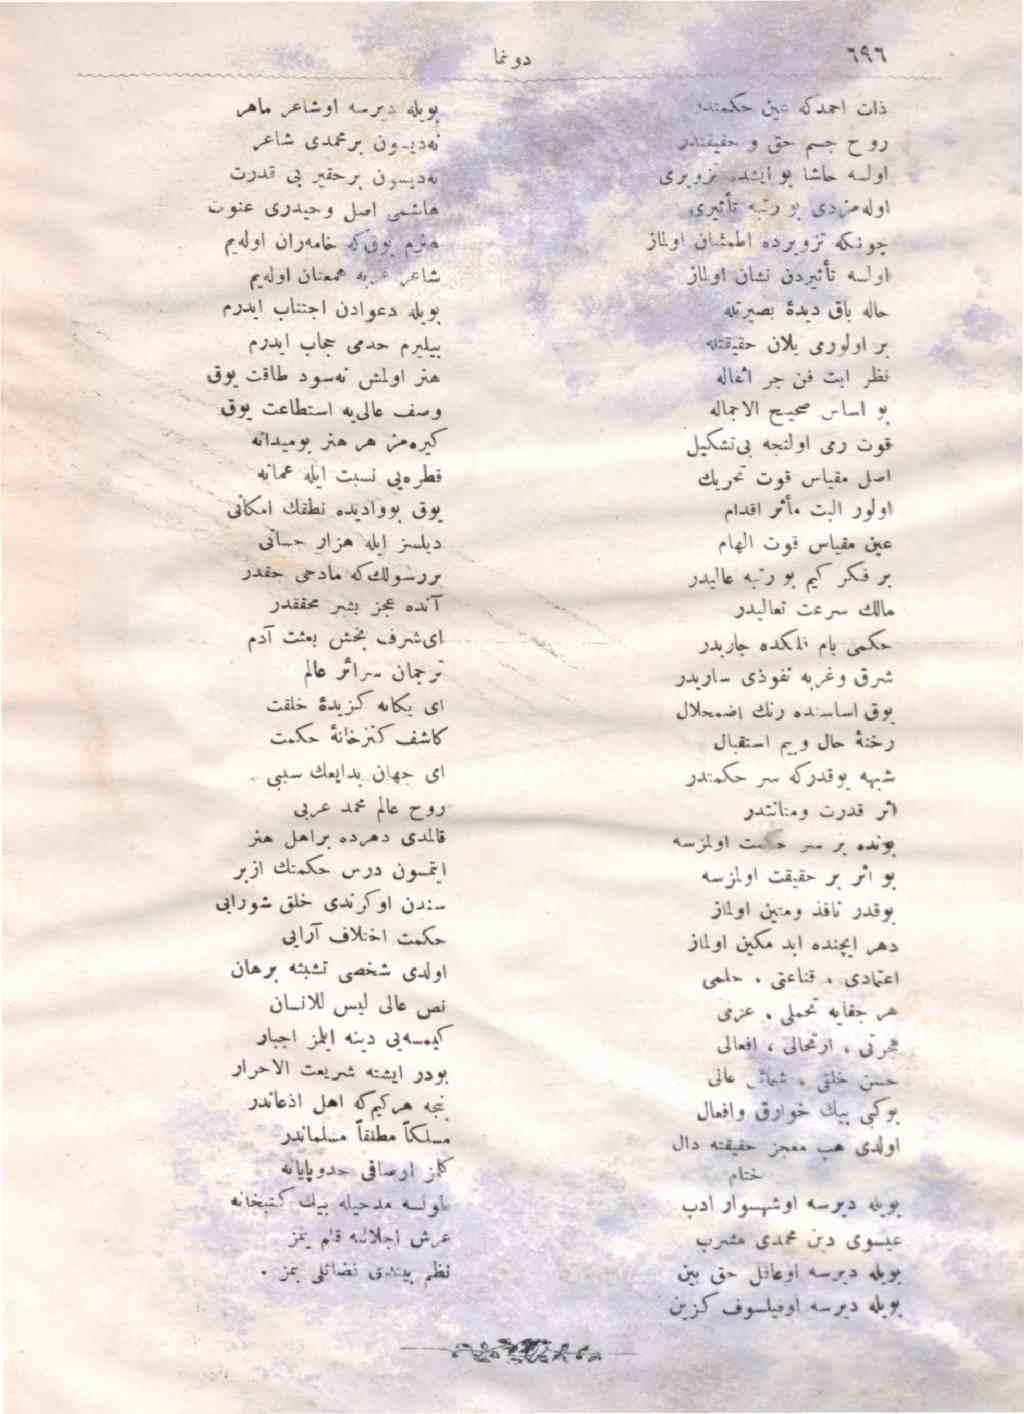 ٦٩٦
دونما
ذات احمدكه عين حكمتدر
روح جسم حق و حقيقتدر
اولسه حاشا بو ايشده تزويرى
اولهمزدى بو رتبه تأثيرى
چونكه تزويرده اطمئنان اولماز
اولسه تأثيردن نشان اولماز
حاله باق ديدۀ بصيرتله
بر اولورمى يلان حقيقتله
نظر ايت فن جر اثقاله
بو اساس صحيح الاجماله
قوت رمى اولنجه بى تشكيل
اصل مقياس قوت تحريك
اولور البت مأثر اقدام
عين مقياس قوت الهام
بر فكر كيم بو رتبه عاليدر
مالك سرعت تعاليدر
حكمى بام فلكده جاريدر
شرق وغربه نفوذى ساريدر
يوق اساسنده رنك اضمحلال
رخنۀ حال وبيم استقبال
شبهه يوقدركه سر حكمتدر
اثر قدرت ومتانتدر
بونده بر سر حكمت اولمزسه
بو اثر بر حقيقت اولمزسه
بوقدر نافذ ومتين اولماز
دهر ايچنده ابد مكين اولماز
اعتمادى ، قناعتى ، حلمى
هر جفايه تحملى ، عزمى
هجرتى ، ارتحالى ، افعالى
حسن خلقى ، شمائل عالى
بوكبى بيك خوارق وافعال
اولدى هپ معجز حقيقته دال
ختام
بويله ديرسه اوشهسوار ادب
عيسوى دين محمدى مشرب
بويله ديرسه اوعاقل حق بين
بويله ديرسه اوفيلسوف كزين
بويله ديرسه اوشاعر ماهر
نه ديسون بر محمدى شاعر
نه ديسون بر حقير بى قدرت
هاشمى اصل وحيدرى عنوت
هنرم يوق كه خامه ران اولهيم
شاعر غربه همعنان اولهيم
بويله دعوادن اجتناب ايدرم
بيليرم حدمى حجاب ايدرم
هنر اولمش نه سود طاقت يوق
وصف عالىيه استطاعت يوق
كيره مز هر هنر بوميدانه
قطرهيى نسبت ايله عمانه
يوق بوواديده نطفك امكانى
ديلسز ايله هزار حسانى
بررسولك كه مادحى حقدر
آنده عجز بشر محققدر
اى شرف بخش بعثت آدم
ترجمان سرائر عالم
اى يكانه كزيدۀ خلقت
كاشف كنزخانۀ حكمت
اى جهان بدايعك سببى
روح عالم محمد عربى
قالمدى دهرده براهل هنر
ايتمسون درس حكمتك ازبر
سندن اوكرندى خلق شورايى
حكمت اختلاف آرايى
اولدى شخصى تشبثه برهان
نص عالى ليس للانسان
كيمسهيى دينه ايلمز اجبار
بودر ايشته شريعت الاحرار
نجه هركيم كه اهل اذعاندر
مسلكاً مطلقاً مسلماندر
كلمز اوصافى حدوپايانه
طولسه مدحيله بيك كتبخانه
عرش اجلالنه قلم يتمز
نظم بيتدى فضائلى بتمز .